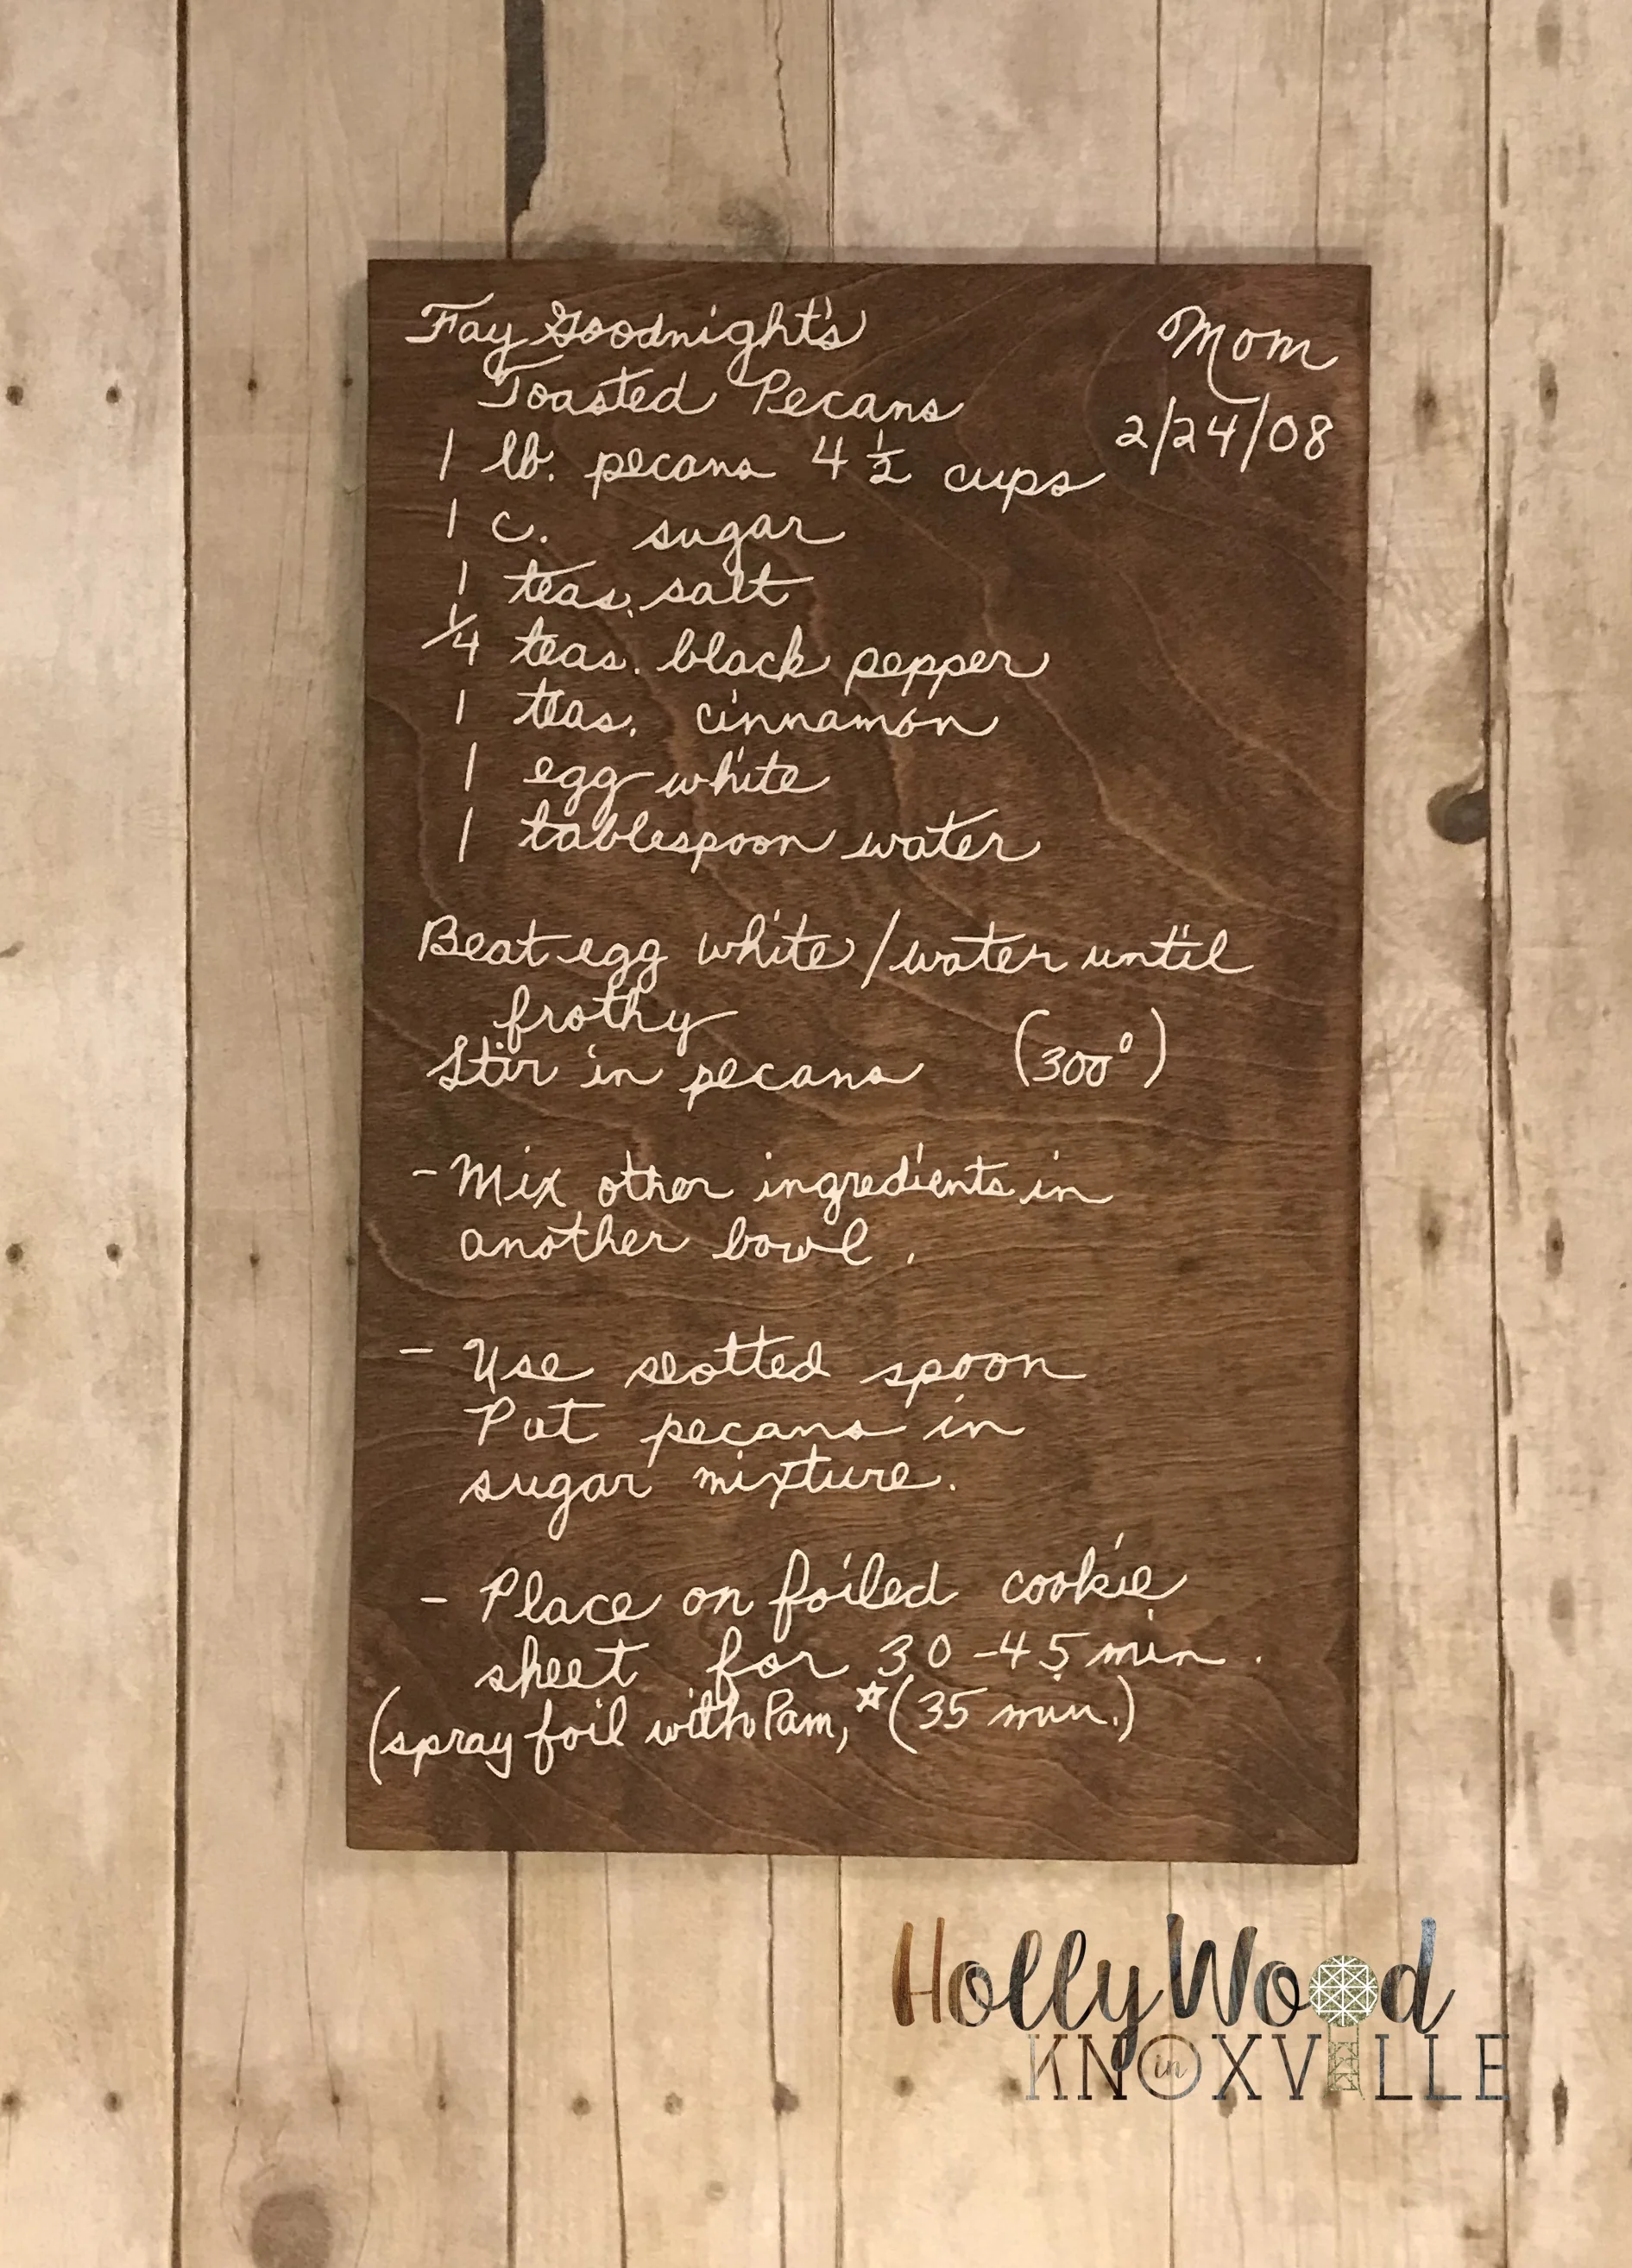 Fay Goodnight's
Toasted Pecans
Mom
2/24/08
1 lb. pecans 4 1/2 cups
1 c. sugar
1 teas. salt
1/4 teas. black pepper
1 teas. cinnamon
1 egg white
1 tablespoon water
Beat egg white/water until
frothy
Stir in pecans (300°)
- Mix other ingredients in
another bowl.
- Use slotted spoon
Put pecans in
sugar mixture.
- Place on foiled cookie
sheet for 30-45 min.
(spray foil with Pam, ☆(35 min.)
HollyWood
in
KNOXVILLE